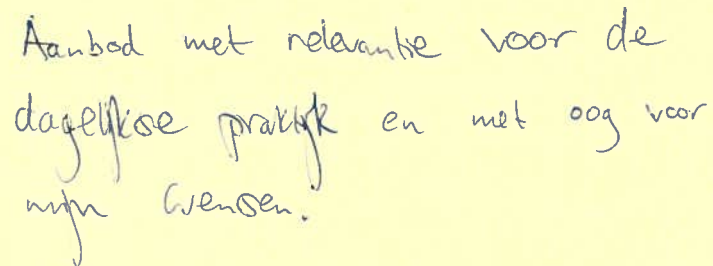 Aanbod met relevantie voor de
dagelijkse praktijk en met oog voor
mijn wensen.